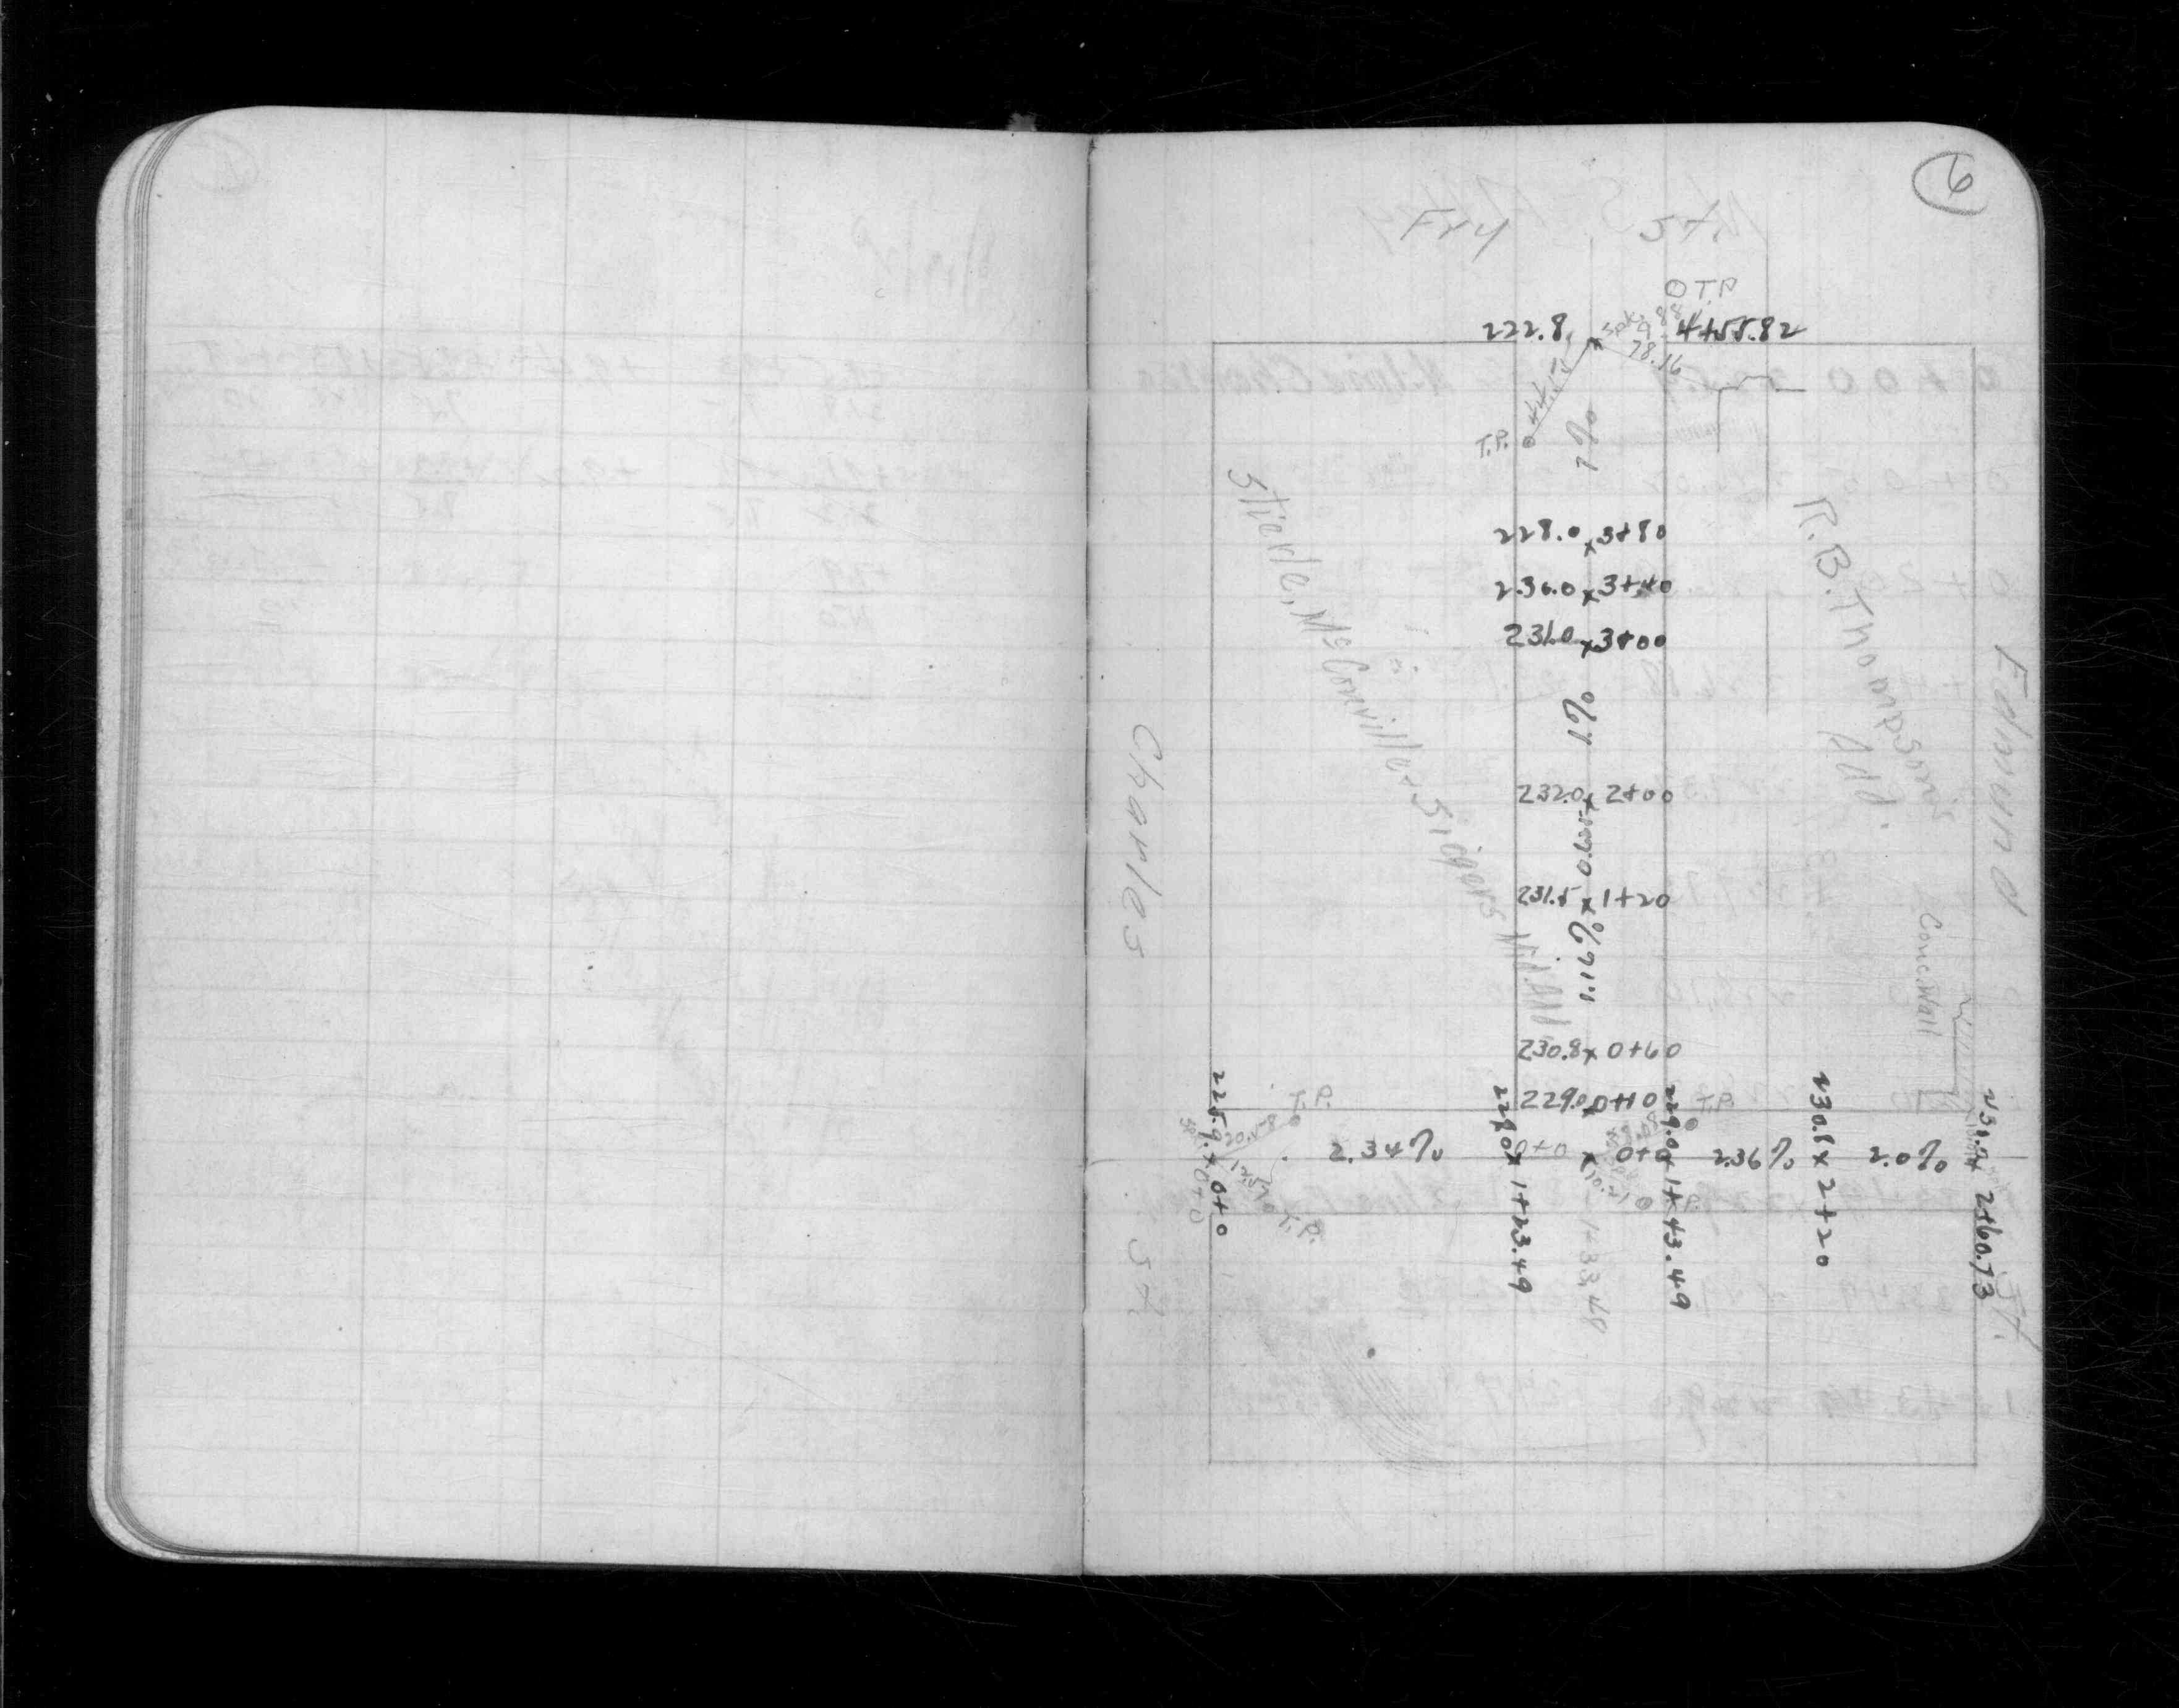 6
Fry St.
O T.P.
222.8 x 4+55.82
Spk. 9.88
78.16
44.15
T.P.
1%
228.0 x 3+80
230.0 x 3+40
231.0 x 3+00
1%
232.0 x 2+00
0.625%
231.5 x 1+20
1.16%
230.8 x 0+60
229.0 x 0+10
Stierle, McConville & Siegers Mid. Add.
R.B. Thompsons Add.
Charles St
Edmund St.
Conc. Wall
T.P.
20.58
T.P.
T.P.
T.P.
225.9 x 0+0
0+0
2.34%
229.0 x 1+23.49
0+0
x 0+0
1+33.49
229.0 x 1+43.49
2.36%
230.8 x 2+20
2.0%
2+60.73